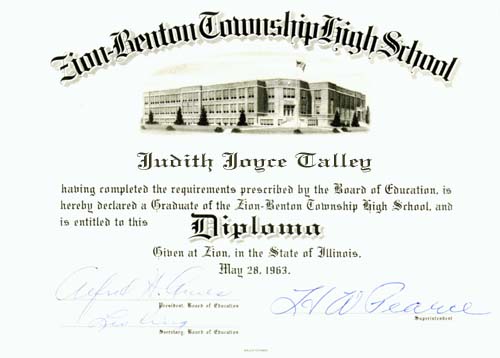 Zion-Benton Township High School
Judith Joyce Talley
having completed the requirements prescribed by the Board of Education, is
hereby declared a Graduate of the Zion-Benton Township High School, and
is entitled to this Diploma
Given at Zion, in the State of Illinois,
May 28, 1963.
President, Board of Education
H W Pearce
Superintendent
Secretary, Board of Education